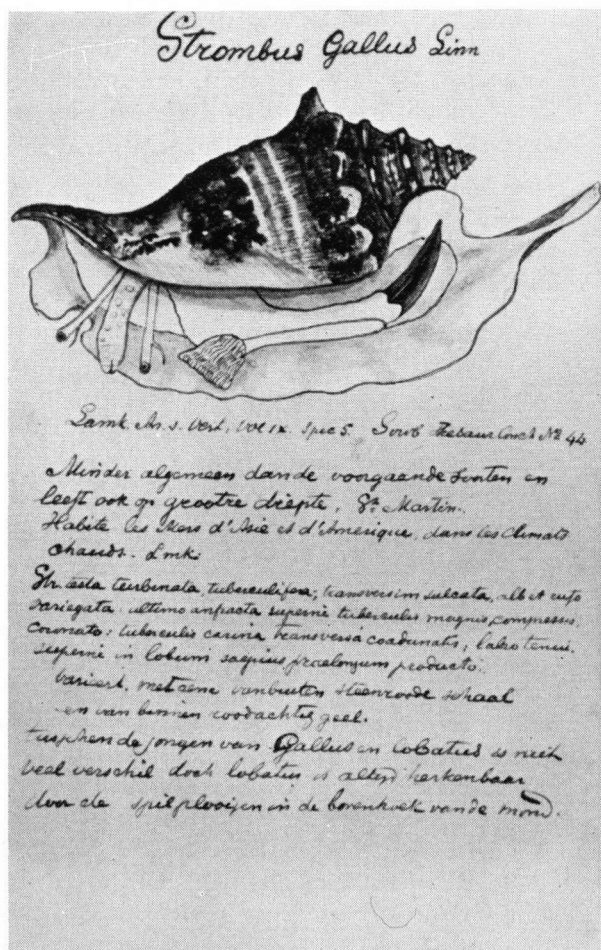 Strombus Gallus Linn
Lamk. An. s. Vert, Vol IX. Spec 5. Sowb Thesaur Conch No 44
Minder algemeen dan de voorgaande soorten en
leeft ook op grootre diepte, St. Martin.
Habite les Mers d'Asie et d'Amerique, dans les Climats
chauds. Lmk.
Str. testa turbinata, tuberculifera; transversim sulcata, alb et rufo
variegata: ultimo anfractu superne tuberculis magnis, compressis,
coronato: tuberculis carina transversa coadunatis; labro tenui,
superne in lobum saepius praelongum producto.
Varieert, met eene van buiten steenroode schaal
en van binnen roodachtig geel.
tusschen de jongen van Gallus en lobatus is niet
veel verschil doch lobatus is altijd herkenbaar
door de spilplooijen in de bovenhoek van de mond.